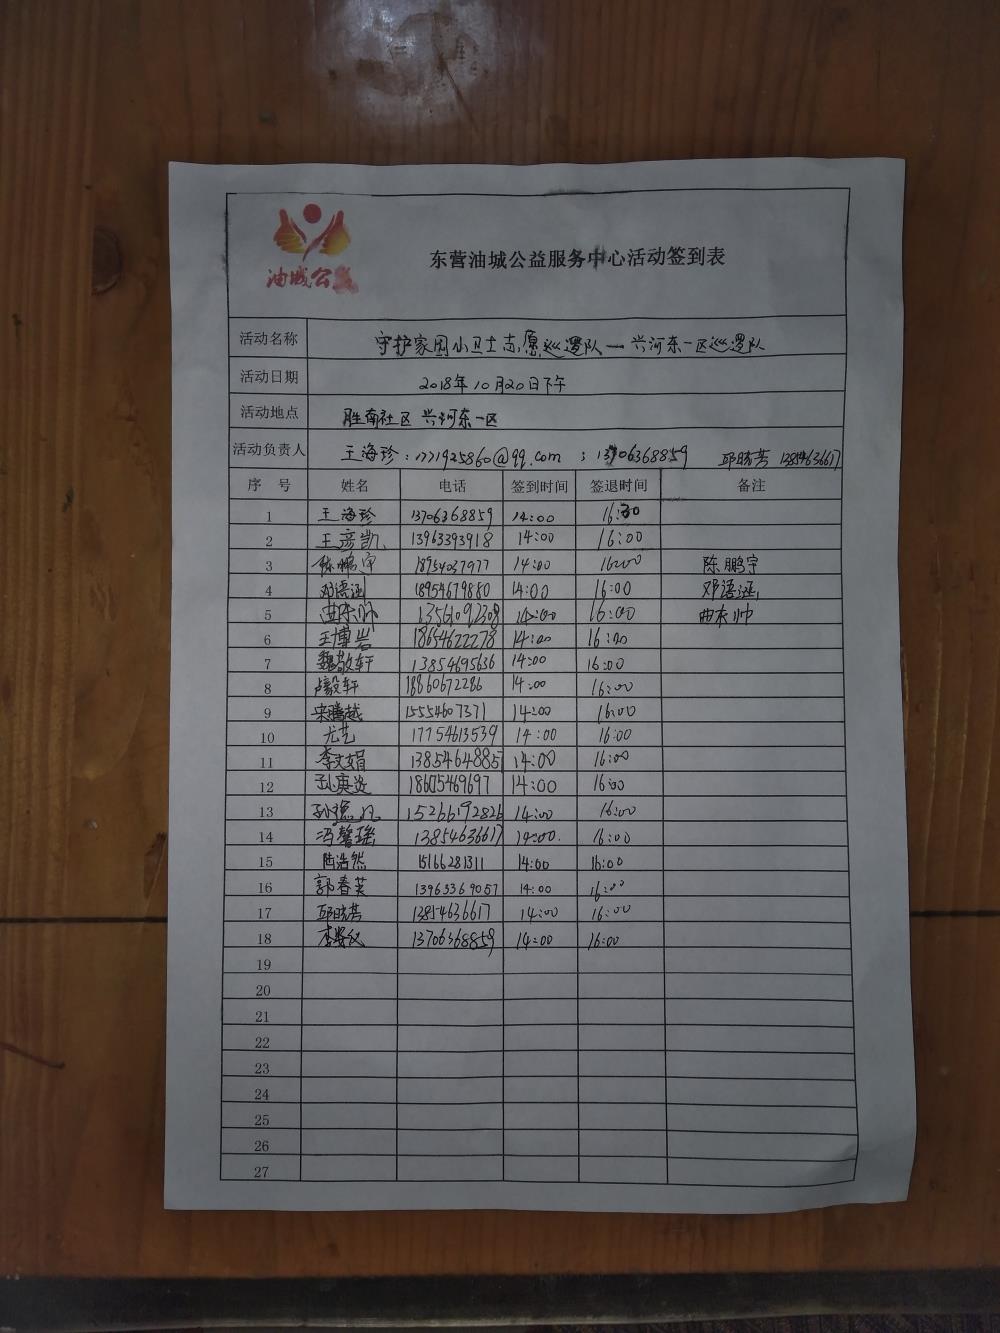 油城公益
东营油城公益服务中心活动签到表
活动名称 守护家园小卫士志愿巡逻队—兴河东一区巡逻队
活动日期 2018年10月20日下午
活动地点 胜南社区 兴河东一区
活动负责人 王海珍：1771925860@qq.com ；13706368859 邱晓芳 13854636617
序 号 姓名 电话 签到时间 签退时间 备注
1 王海珍 13706368859 14:00 16:00
2 王彦凯 13963393918 14:00 16:00
3 陈鹏宇 18954037977 14:00 16:00 陈鹏宇
4 邓语涵 18954679880 14:00 16:00 邓语涵
5 曲东帅 13561092308 14:00 16:00 曲东帅
6 王博岩 18654622278 14:00 16:00
7 魏敬轩 13854695636 14:00 16:00
8 卢毅轩 18860672286 14:00 16:00
9 宋腾越 15554607371 14:00 16:00
10 尤艺 17754613539 14:00 16:00
11 李文娟 13854648857 14:00 16:00
12 孙奕炎 18605469697 14:00 16:00
13 15266192826 14:00 16:00
14 冯馨瑶 13854636617 14:00 16:00
15 陆浩然 15166281311 14:00 16:00
16 郭春英 13965369057 14:00 16:00
17 邱晓芳 13854636617 14:00 16:00
18 13706368859 14:00 16:00
19
20
21
22
23
24
25
26
27